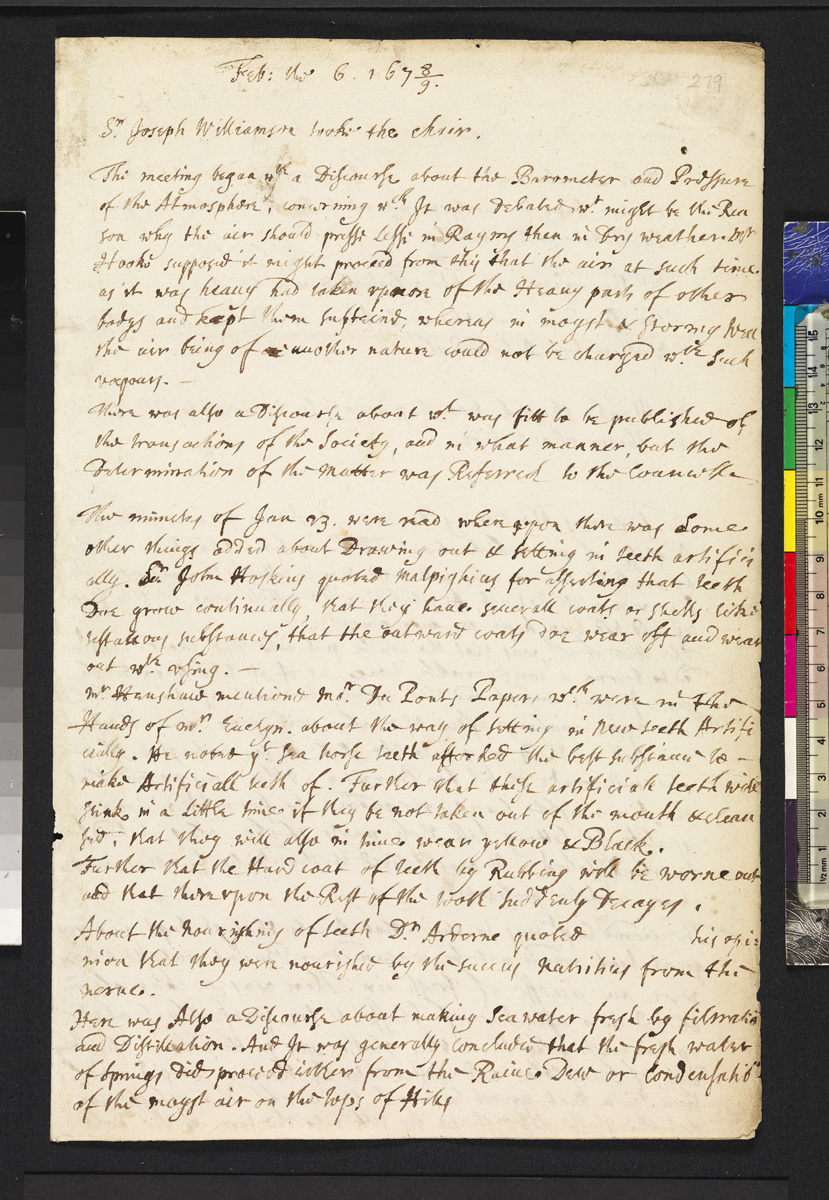 279
Feb: the 6. 167 8/9.
Sr. Joseph Williamson tooke the chair.
The meeting began wth a Discourse about the Barometer and Pressure
of the Atmosphere, concerning wch It was Debated wt might be the Rea
son why the air should presse Lesse in Raynys then in Dry weather. Mr
Hooke supposd it might proceed from this that the air at such time
as it was heavy had taken up more of the Heavy parts of other
bodys and kept them susteind, whereas in moyst & stormy Wea
the air being of another nature could not be charged wth such
vapours. —
There was also a Discourse about wt was fitt to be published of
the transactions of the Society, and in what manner, but the
Determination of the matter was Referred to the Councell
The minutes of Jan 23. were read whereupon there was Some
other things added about Drawing out & setting in teeth artifici
ally. Sr. John Hoskins quoted Malpighius for asserting that teeth
Doe grow continually, that they have severall coats or shells like
testaceous substances, that the outward coats doe wear off and wear
out wth using. —
Mr Henshaw mentiond Mr. Du Ponts Papers wch were in the
Hands of mr. Euelyn. about the way of setting in New teeth Artifi
cially. He noted yt Sea horse teeth afforded the best substance to -
make Artificiall teeth of. Further that these artificiale teeth will
stink in a little time if they be not taken out of the mouth & clean
sed, that they will also in time wear yellow & Black.
Further that the Hard coat of teeth by Rubbing will be worne out
and that thereupon the Rest of the tooth suddenly Decayes.
About the nourishing of teeth Dr. Arderne quoted his opi:
nion that they were nourished by the succus nutritius from the
nerve.
Here was Also a Discourse about making Seawater fresh by filtratio
and Distillation. And It was generally concluded that the fresh water
of Springs did proceed either from the Raine Dew or condensatio
of the moyst air on the tops of Hills